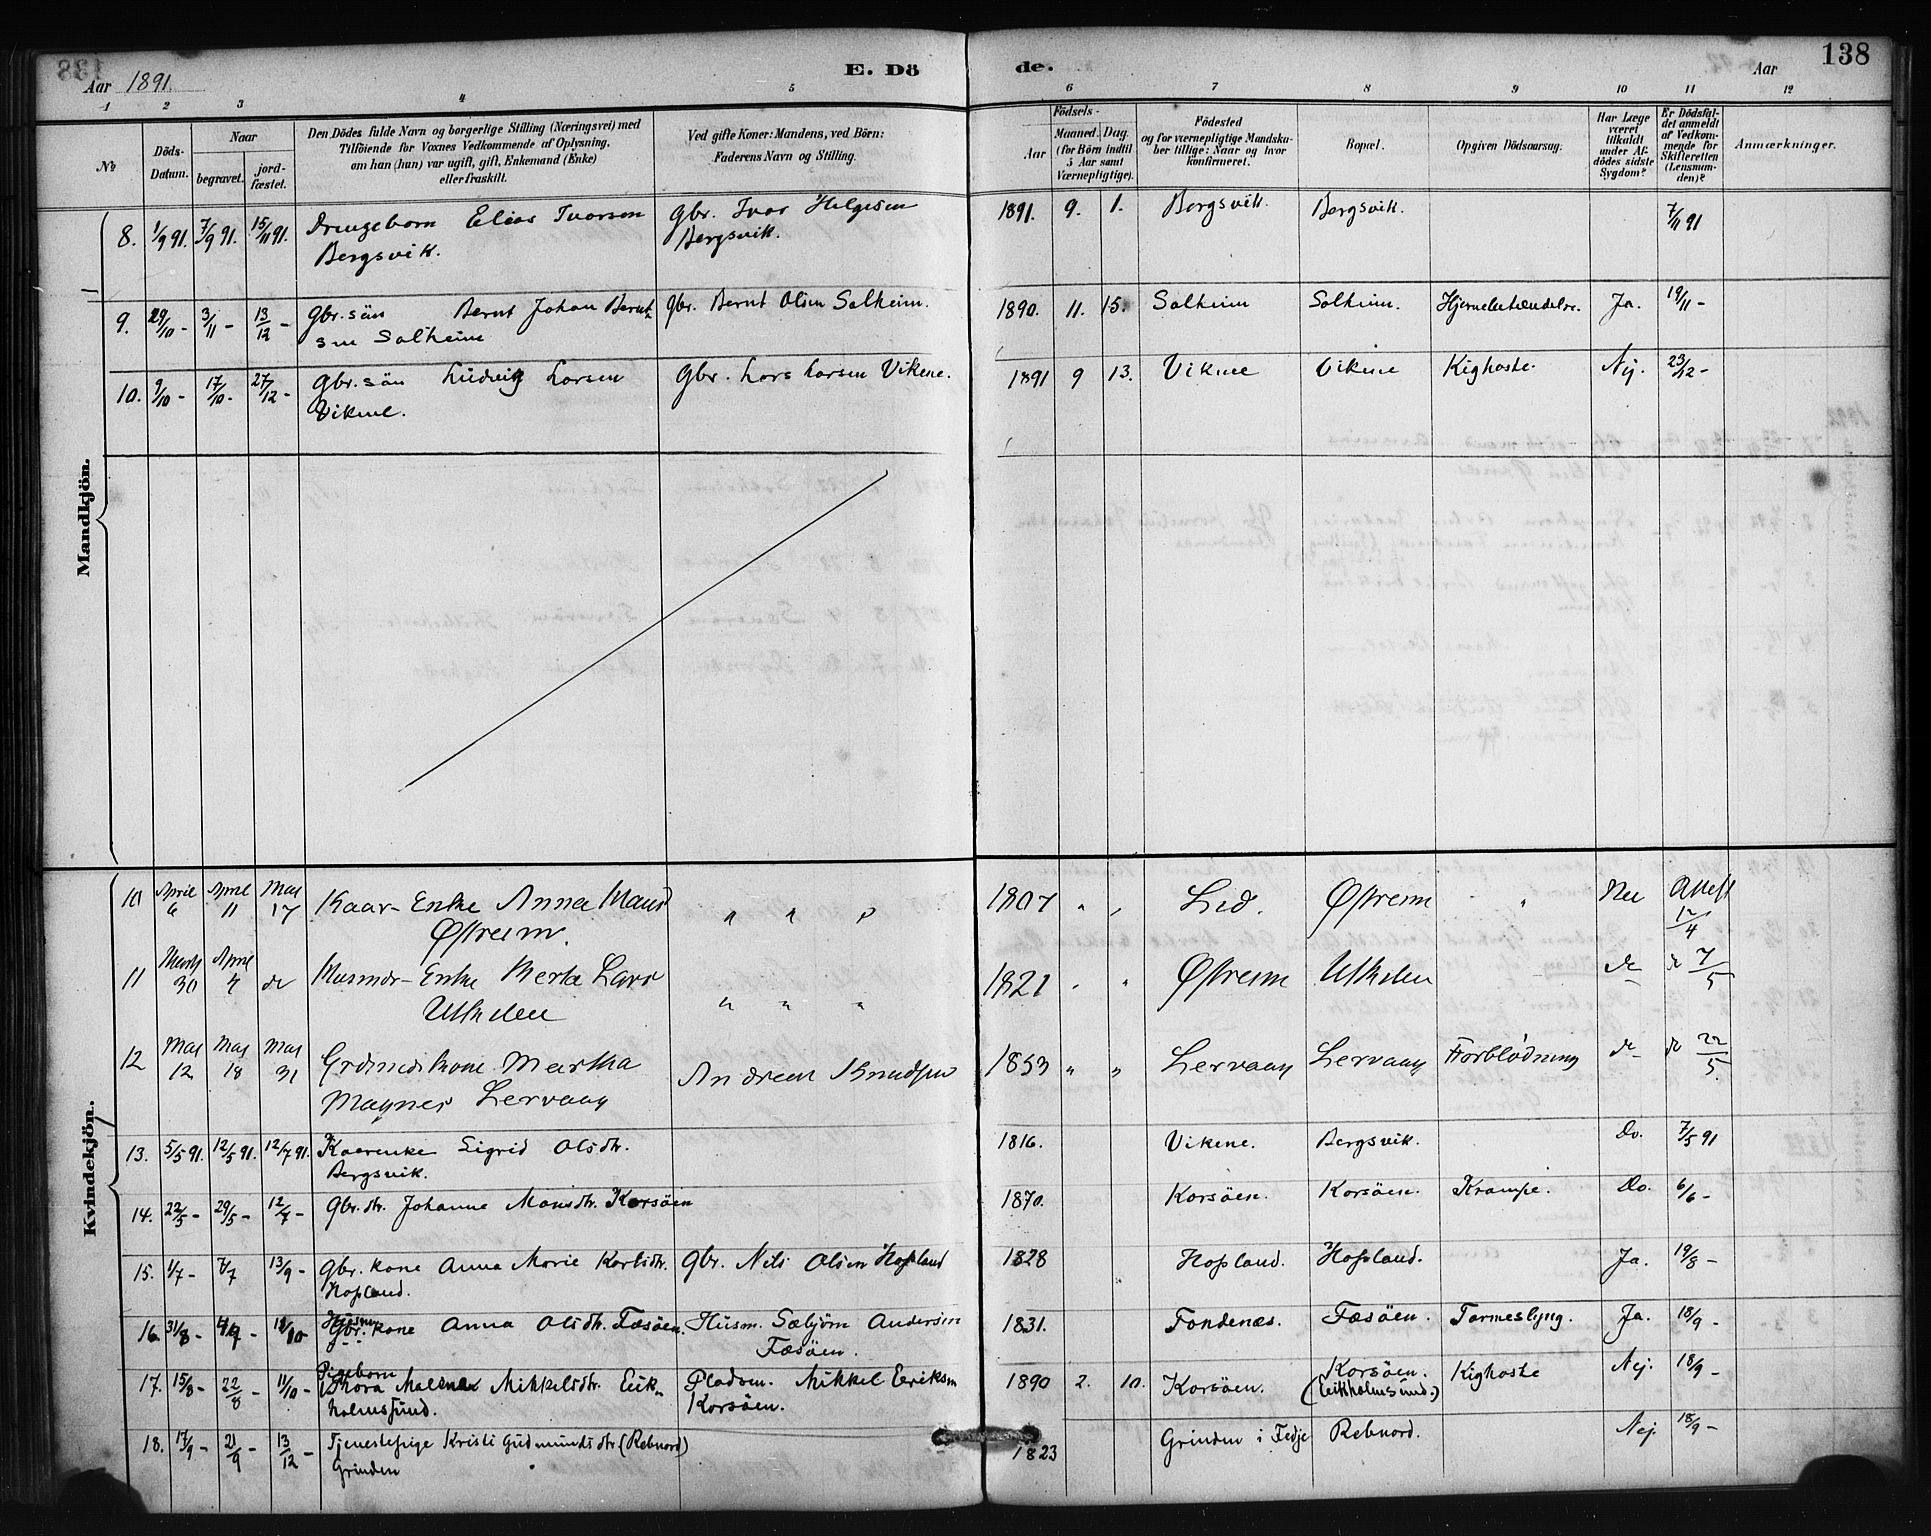 Aar 1891.
E. Dö
de.
Aar
138
1 2 3 4 5 6 7 8 9 10 11 12
No
Döds-Datum.
Naar
begravet.
jord-fæstet.
Den Dödes fulde Navn og borgerlige Stilling (Næringsvei) med
Tilföiende for Voxnes Vedkommende af Oplysning,
om han (hun) var ugift, gift, Enkemand (Enke)
eller fraskilt.
Ved gifte Koner: Mandens, ved Börn:
Faderens Navn og Stilling.
Födsels-
Aar
Maaned. Dag.
(for Börn indtil
5 Aar samt
Værnepligtige).
Födested
og for værnepligtige Mandska-
ber tillige: Naar og hvor
konfirmeret.
Bopæl.
Opgiven Dödsaarsag.
Har Læge
været
tilkaldt
under Af-
dödes sidste
Sygdom?
Er Dödsfal-
det anmeldt
af Vedkom-
mende for
Skifteretten
(Lensman-
den)?
Anmærkninger.
Mandkjön.
8. 1/9 91. 7/9 91. 15/11 91. Drengebarn Elias Ivarsen Gbr. Ivar Helgesen 1891. 9. 1. Bergsvik. Bergsvik. 7/11 91
Bergsvik. Bergsvik.
9. 29/10 - 3/11 - 13/12 - Gbr. sön Bernt Johan Bernt- Gbr. Bernt Olsen Solheim. 1890. 11. 15. Solheim Solheim. Hjernebetændelse. Ja. 19/11 -
sen Solheim
10. 9/10 - 17/10 - 27/12 - Gbr. sön Ludvig Larsen Gbr. Lars Larsen Vikene. 1891 9 13. Vikene Vikene Kighoste. Nej. 23/12 -
Vikene.
Kvindekjön.
10 April 6 April 11 Mai 17 Kaar-Enke Anna Mand " " " 1807 " Lid. Østreim " Nei Attest 12/4
Østreim.
11 Marts 30 April Husmds-Enke Berta Lars " " " 1821 " " Østreim do 7/5
12 Mai 12 Mai 18 Mai 31 Grdmdskone Martha Andreas Knudsen 1853 " " Lervaag Lervaag Forblødning do do 22/5
Magnes Lervaag
13. 5/5 91. 12/5 91. 12/7 91. Kaarenke Sigrid Olsdtr. 1816. Vikene. Bergsvik. Do. 7/5 91
Bergsvik.
14. 22/5 - 29/5 - 12/7 - Gbr. dtr. Johanne Monsdtr. Korsöen 1870. Korsöen. Korsöen. Krampe. Do. 6/6 -
15. 1/7 - 7/7 13/9 - Gbr. kone Anna Marie Karlsdtr. Gbr. Nils Olsen Hopland 1828 Hopland. Hopland. Ja. 19/8 -
Hopland.
16. 31/8 - - Husm. kone Anna Olsdtr. Fæsöen. Husm. Sæbjörn Andersen 1831. Fondenæs. Fæsöen. Tarmeslyng. Ja. 18/9 -
Fæsöen.
17. 15/8 - 22/8 - 11/10 - Pigebarn Mikkelsdtr. Eik- Pladsm. Mikkel Eriksen 1890 2. 10. Korsöen. Korsöen. Kighoste Nej. 18/9 -
holmsund. Korsöen. (Eikholmsund.)
18. 17/9 - 21/9 - 13/12 - Tjenestepige Kristi Gudmundsdtr (Rebnord) 1823 Grinden i Fedje Rebnord. Nej 18/9 -
Grinden